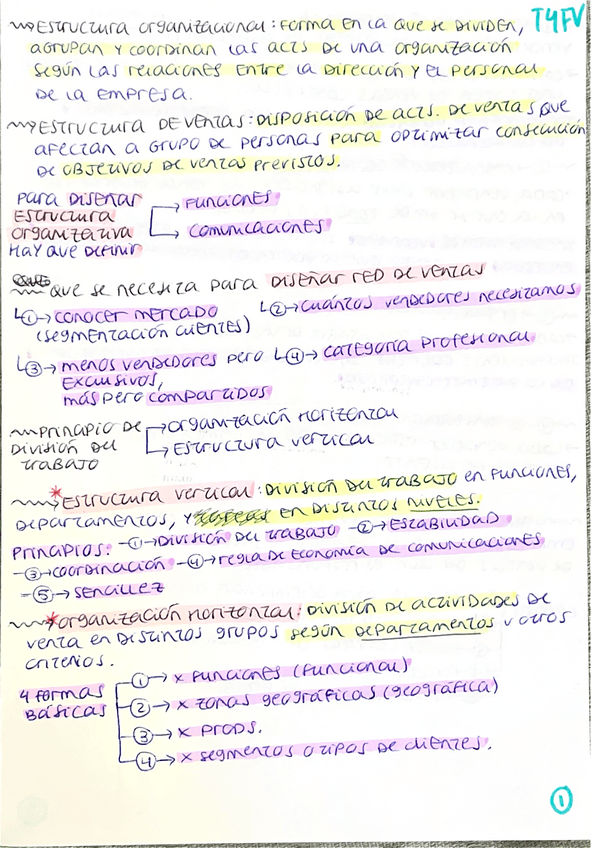 T4FV
→ Estructura organizacional: forma en la que se dividen,
agrupan y coordinan las acts de una organización
según las relaciones entre la dirección y el personal
de la empresa.
→ Estructura de ventas: disposición de acts. de ventas que
afectan a grupo de personas para optimizar consecución
de objetivos de ventas previstos.
Para diseñar
estructura
organizativa
hay que definir
→ Funciones
→ Comunicaciones
que se necesita para diseñar red de ventas
↳①→ conocer mercado
(segmentación clientes)
↳②→ cuántos vendedores necesitamos
↳③→ menos vendedores pero
exclusivos,
más pero compartidos
↳④→ categoría profesional
Prinapio de
división del
trabajo
→ organización horizontal
→ Estructura vertical
* Estructura vertical: división del trabajo en funciones,
departamentos, y en distintos niveles.
Principios: -①→ División del trabajo -②→ Estabilidad
-③→ coordinación -④→ regla de economía de comunicaciones
-⑤→ sencillez
* organización horizontal: división de actividades de
venta en distintos grupos según departamentos u otros
criterios.
4 formas
básicas
①→ x funciones (funcional)
②→ x zonas geográficas (geográfica)
③→ x prods.
④→ x segmentos o tipos de clientes.
①